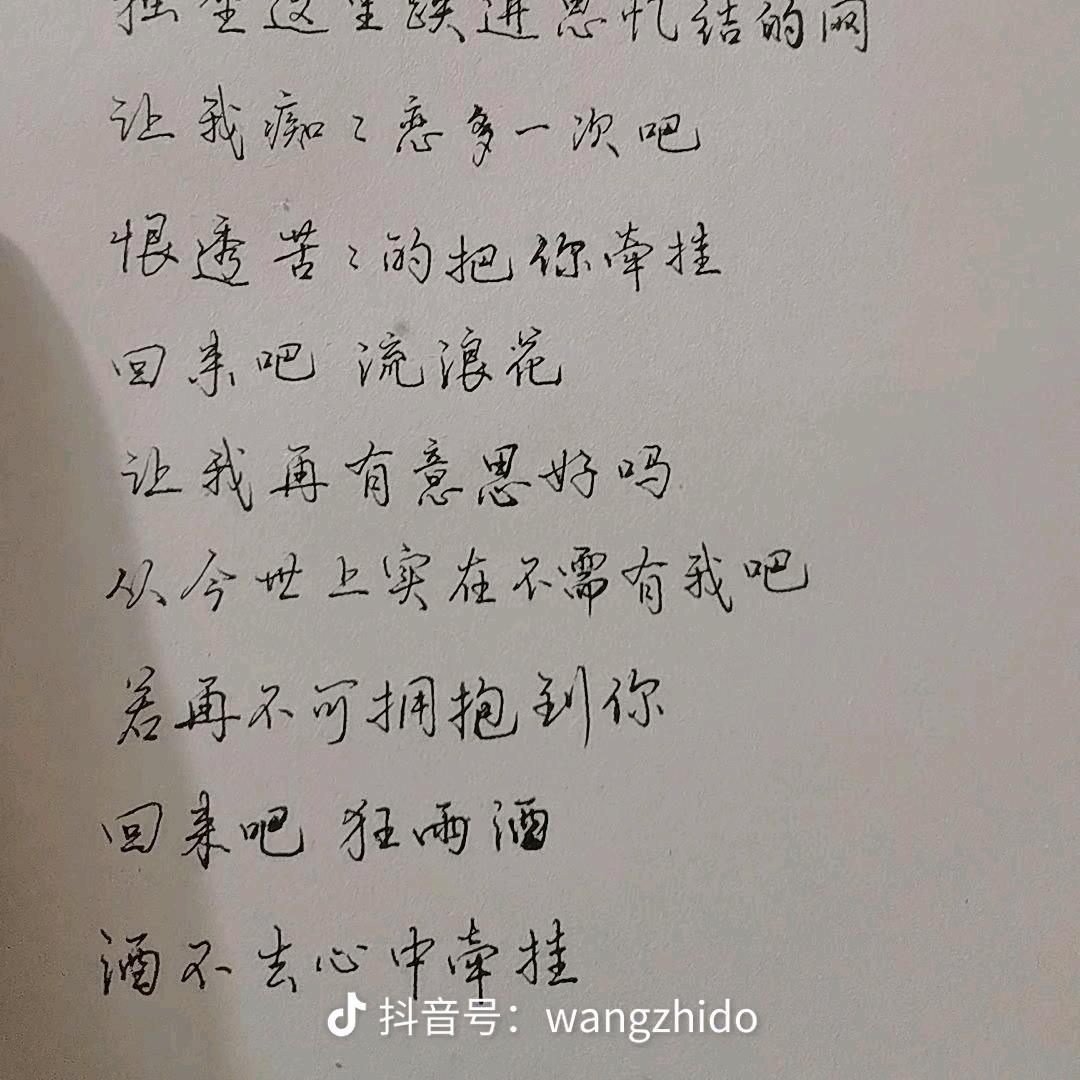 独坐这里跌进思忆结的网
让我痴〻恋多一次吧
恨透苦〻的把你牵挂
回来吧 流浪花
让我再有意思好吗
从今世上实在不需有我吧
若再不可拥抱到你
回来吧 狂雨洒
洒不去心中牵挂
抖音号：wangzhido